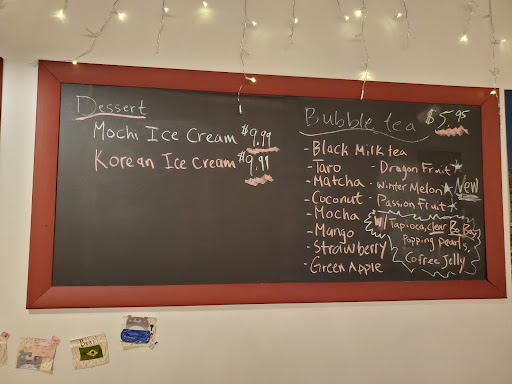 Dessert
Mochi Ice Cream $9.99
Korean Ice Cream $9.99
Bubble tea $5.95
- Black Milk tea
- Taro - Dragon Fruit
- Matcha - Winter Melon New
- Coconut - Passion Fruit
- Mocha
- Mango
- Strawberry
- Green Apple
W/ Tapioca, Clear Bo Ba,
Popping pearls,
Coffee Jelly